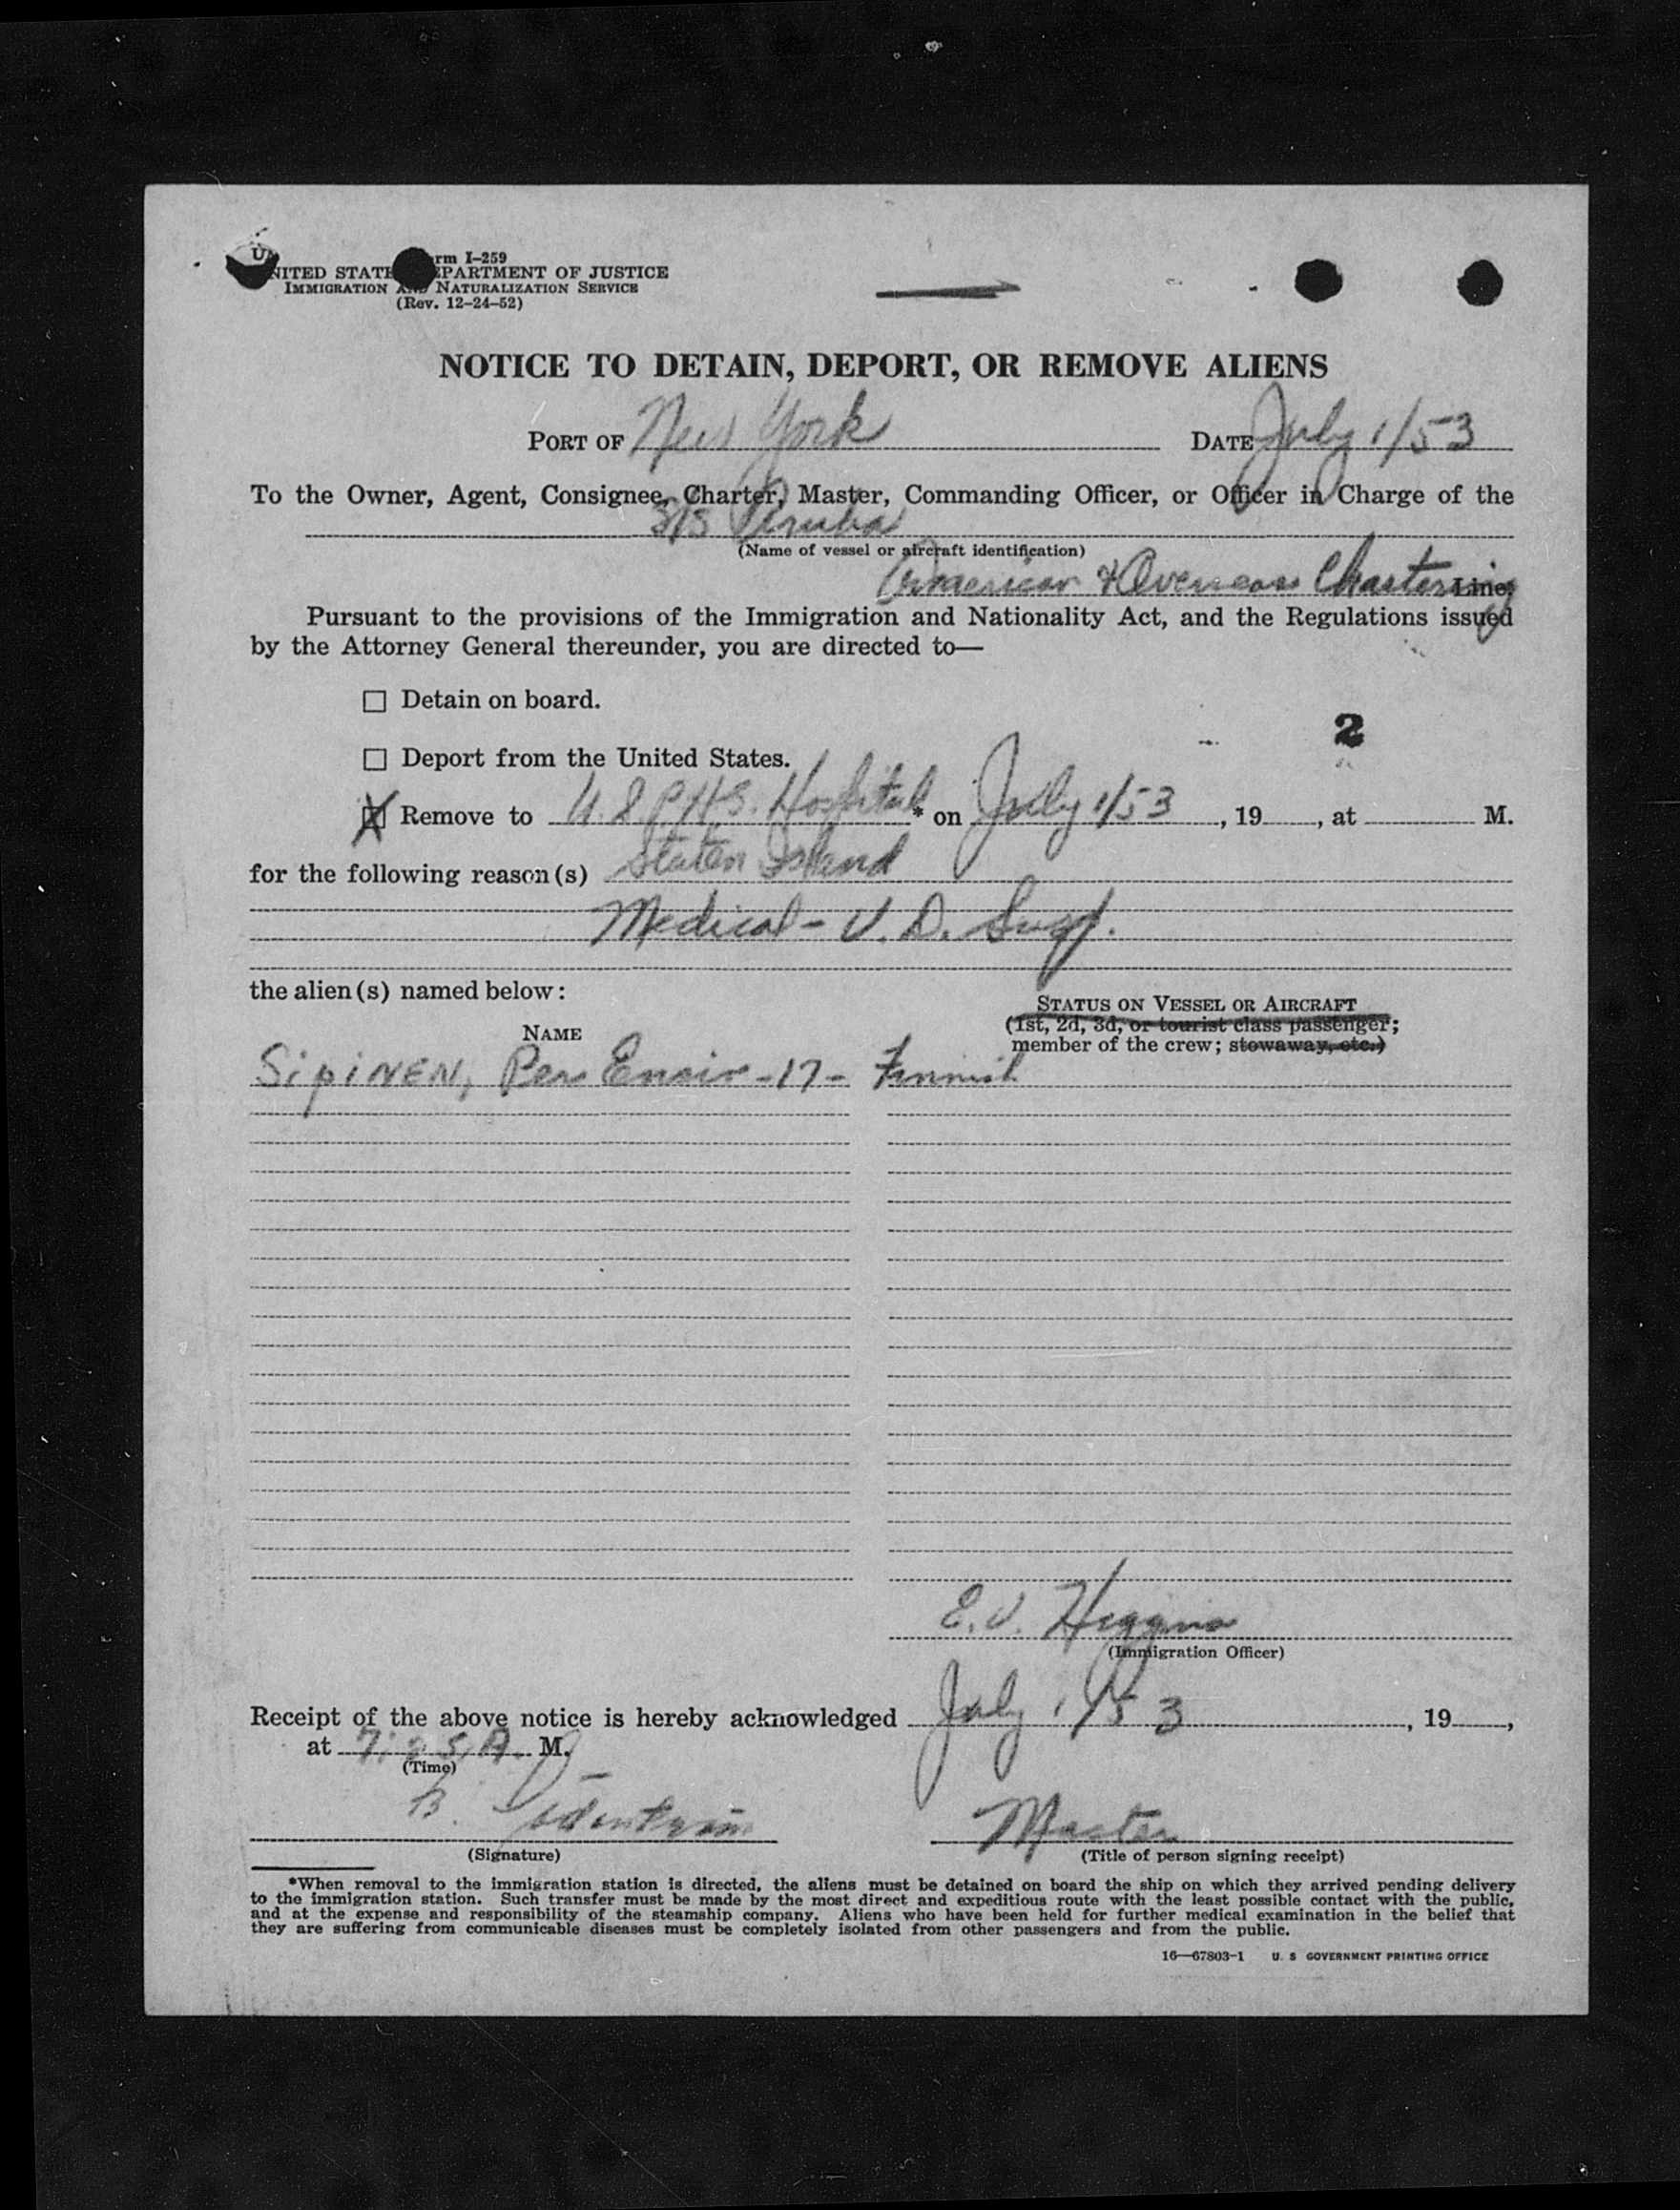 rm I-259
UNITED STATE EPARTMENT OF JUSTICE
IMMIGRATION AND NATURALIZATION SERVICE
(Rev. 12-24-52)
NOTICE TO DETAIN, DEPORT, OR REMOVE ALIENS
PORT OF New York DATE July 1/53
To the Owner, Agent, Consignee, Charter, Master, Commanding Officer, or Officer in Charge of the
S/S
(Name of vessel or aircraft identification)
American & Overseas Chartering Line,
Pursuant to the provisions of the Immigration and Nationality Act, and the Regulations issued
by the Attorney General thereunder, you are directed to—
☐ Detain on board.
2
☐ Deport from the United States.
X Remove to U.S.P.H.S. Hospital * on July 1/53, 19, at M.
for the following reason(s) Staten Island
Medical - V. D. Susp.
the alien(s) named below:
STATUS ON VESSEL OR AIRCRAFT
(1st, 2d, 3d, or tourist class passenger;
NAME
member of the crew; stowaway, etc.)
SipiNEN, Per -17- Finnish
E.V. Higgins
(Immigration Officer)
Receipt of the above notice is hereby acknowledged July 1/53, 19,
at 7:25 A. M.
(Time)
Master
(Signature) (Title of person signing receipt)
*When removal to the immigration station is directed, the aliens must be detained on board the ship on which they arrived pending delivery
to the immigration station. Such transfer must be made by the most direct and expeditious route with the least possible contact with the public,
and at the expense and responsibility of the steamship company. Aliens who have been held for further medical examination in the belief that
they are suffering from communicable diseases must be completely isolated from other passengers and from the public.
16—67803-1 U. S GOVERNMENT PRINTING OFFICE